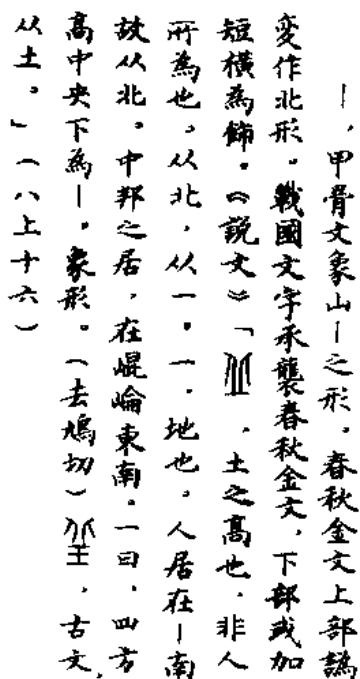 丨，甲骨文象山丨之形。春秋金文上部譌
變作北形。戰國文字承襲春秋金文，下部或加
短橫為飾。《說文》「丠，土之高也，非人
所為也。从北，从一。一，地也，人居在丨南
故从北。中邦之居，在崐崘東南。一曰，四方
高中央下為丨。象形。（去鳩切）𡊣，古文，
从土。」（八上十六）